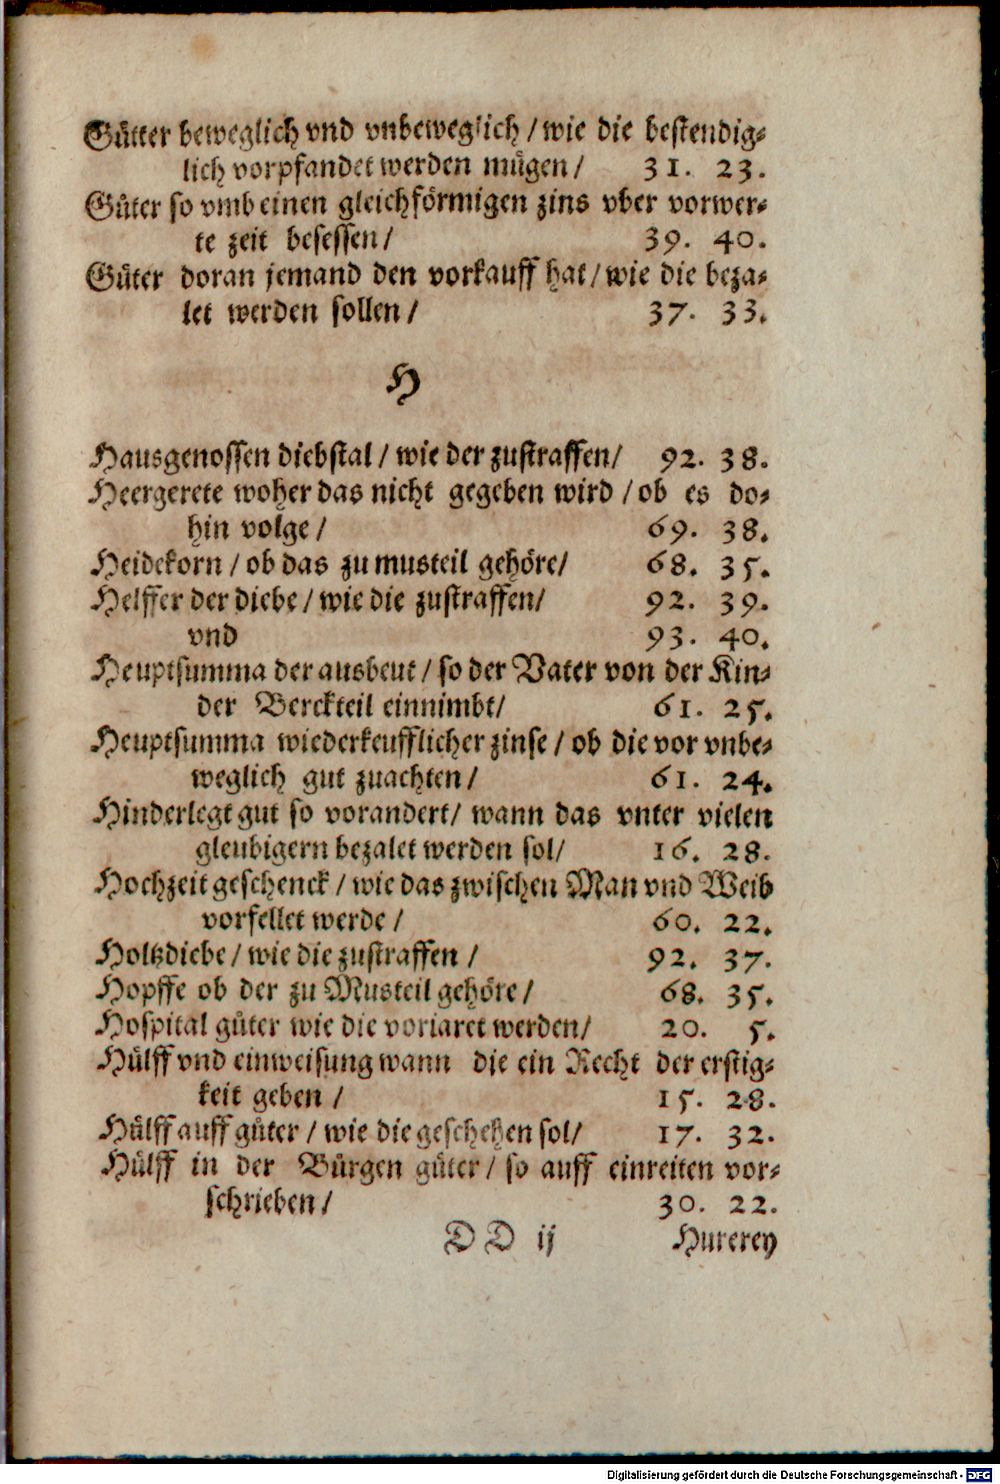 Gůtter beweglich vnd vnbeweglich / wie die bestendig-
lich vorpfandet werden můgen / 31. 23.
Gůter so vmb einen gleichförmigen zins vber vorwer-
te zeit besessen / 39. 40.
Gůter doran jemand den vorkauff hat / wie die beza-
let werden sollen / 37. 33.
H
Hausgenossen diebstal / wie der zustraffen / 92. 38.
Heergerete woher das nicht gegeben wird / ob es do-
hin volge / 69. 38.
Heidekorn / ob das zu musteil gehöre / 68. 35.
Helffer der diebe / wie die zustraffen / 92. 39.
vnd 93. 40.
Heuptsumma der ausbeut / so der Vater von der Kin-
der Berckteil einnimbt / 61. 25.
Heuptsumma wiederkeufflicher zinse / ob die vor vnbe-
weglich gut zuachten / 61. 24.
Hinderlegt gut so vorandert / wann das vnter vielen
gleubigern bezalet werden sol / 16. 28.
Hochzeit geschenck / wie das zwischen Man vnd Weib
vorfellet werde / 60. 22.
Holtzdiebe / wie die zustraffen / 92. 37.
Hopffe ob der zu Musteil gehöre / 68. 35.
Hospital gůter wie die voriaret werden / 20. 5.
Hůlff vnd einweisung wann die ein Recht der erstig-
keit geben / 15. 28.
Hůlff auff gůter / wie die geschehen sol / 17. 32.
Hůlff in der Bůrgen gůter / so auff einreiten vor-
schrieben / 30. 22.
DD ij Hurerey
Digitalisierung gefördert durch die Deutsche Forschungsgemeinschaft - DFG